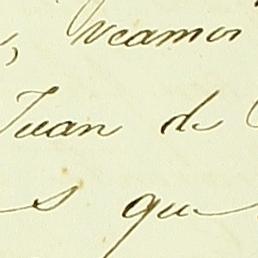 , veamos
Juan de
s que